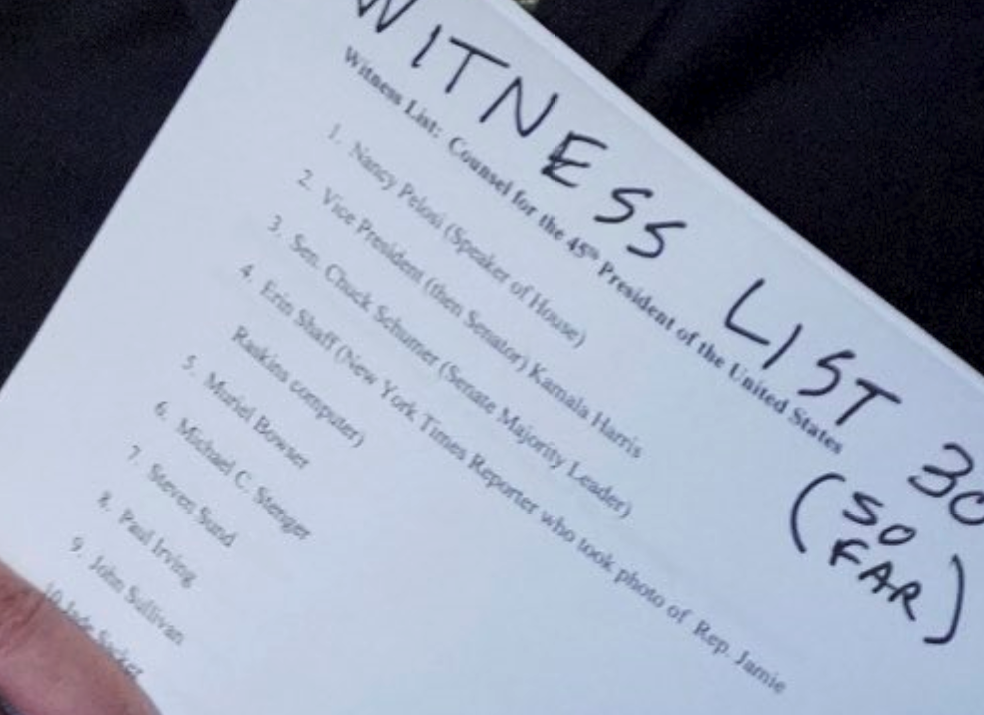 WITNESS LIST 30
(SO
FAR)
Witness List: Counsel for the 45th President of the United States
1. Nancy Pelosi (Speaker of House)
2. Vice President (then Senator) Kamala Harris
3. Sen. Chuck Schumer (Senate Majority Leader)
4. Erin Shaff (New York Times Reporter who took photo of Rep. Jamie
Raskins computer)
5. Muriel Bowser
6. Michael C. Stenger
7. Steven Sund
8. Paul Irving
9. John Sullivan
10. Jade Sacker